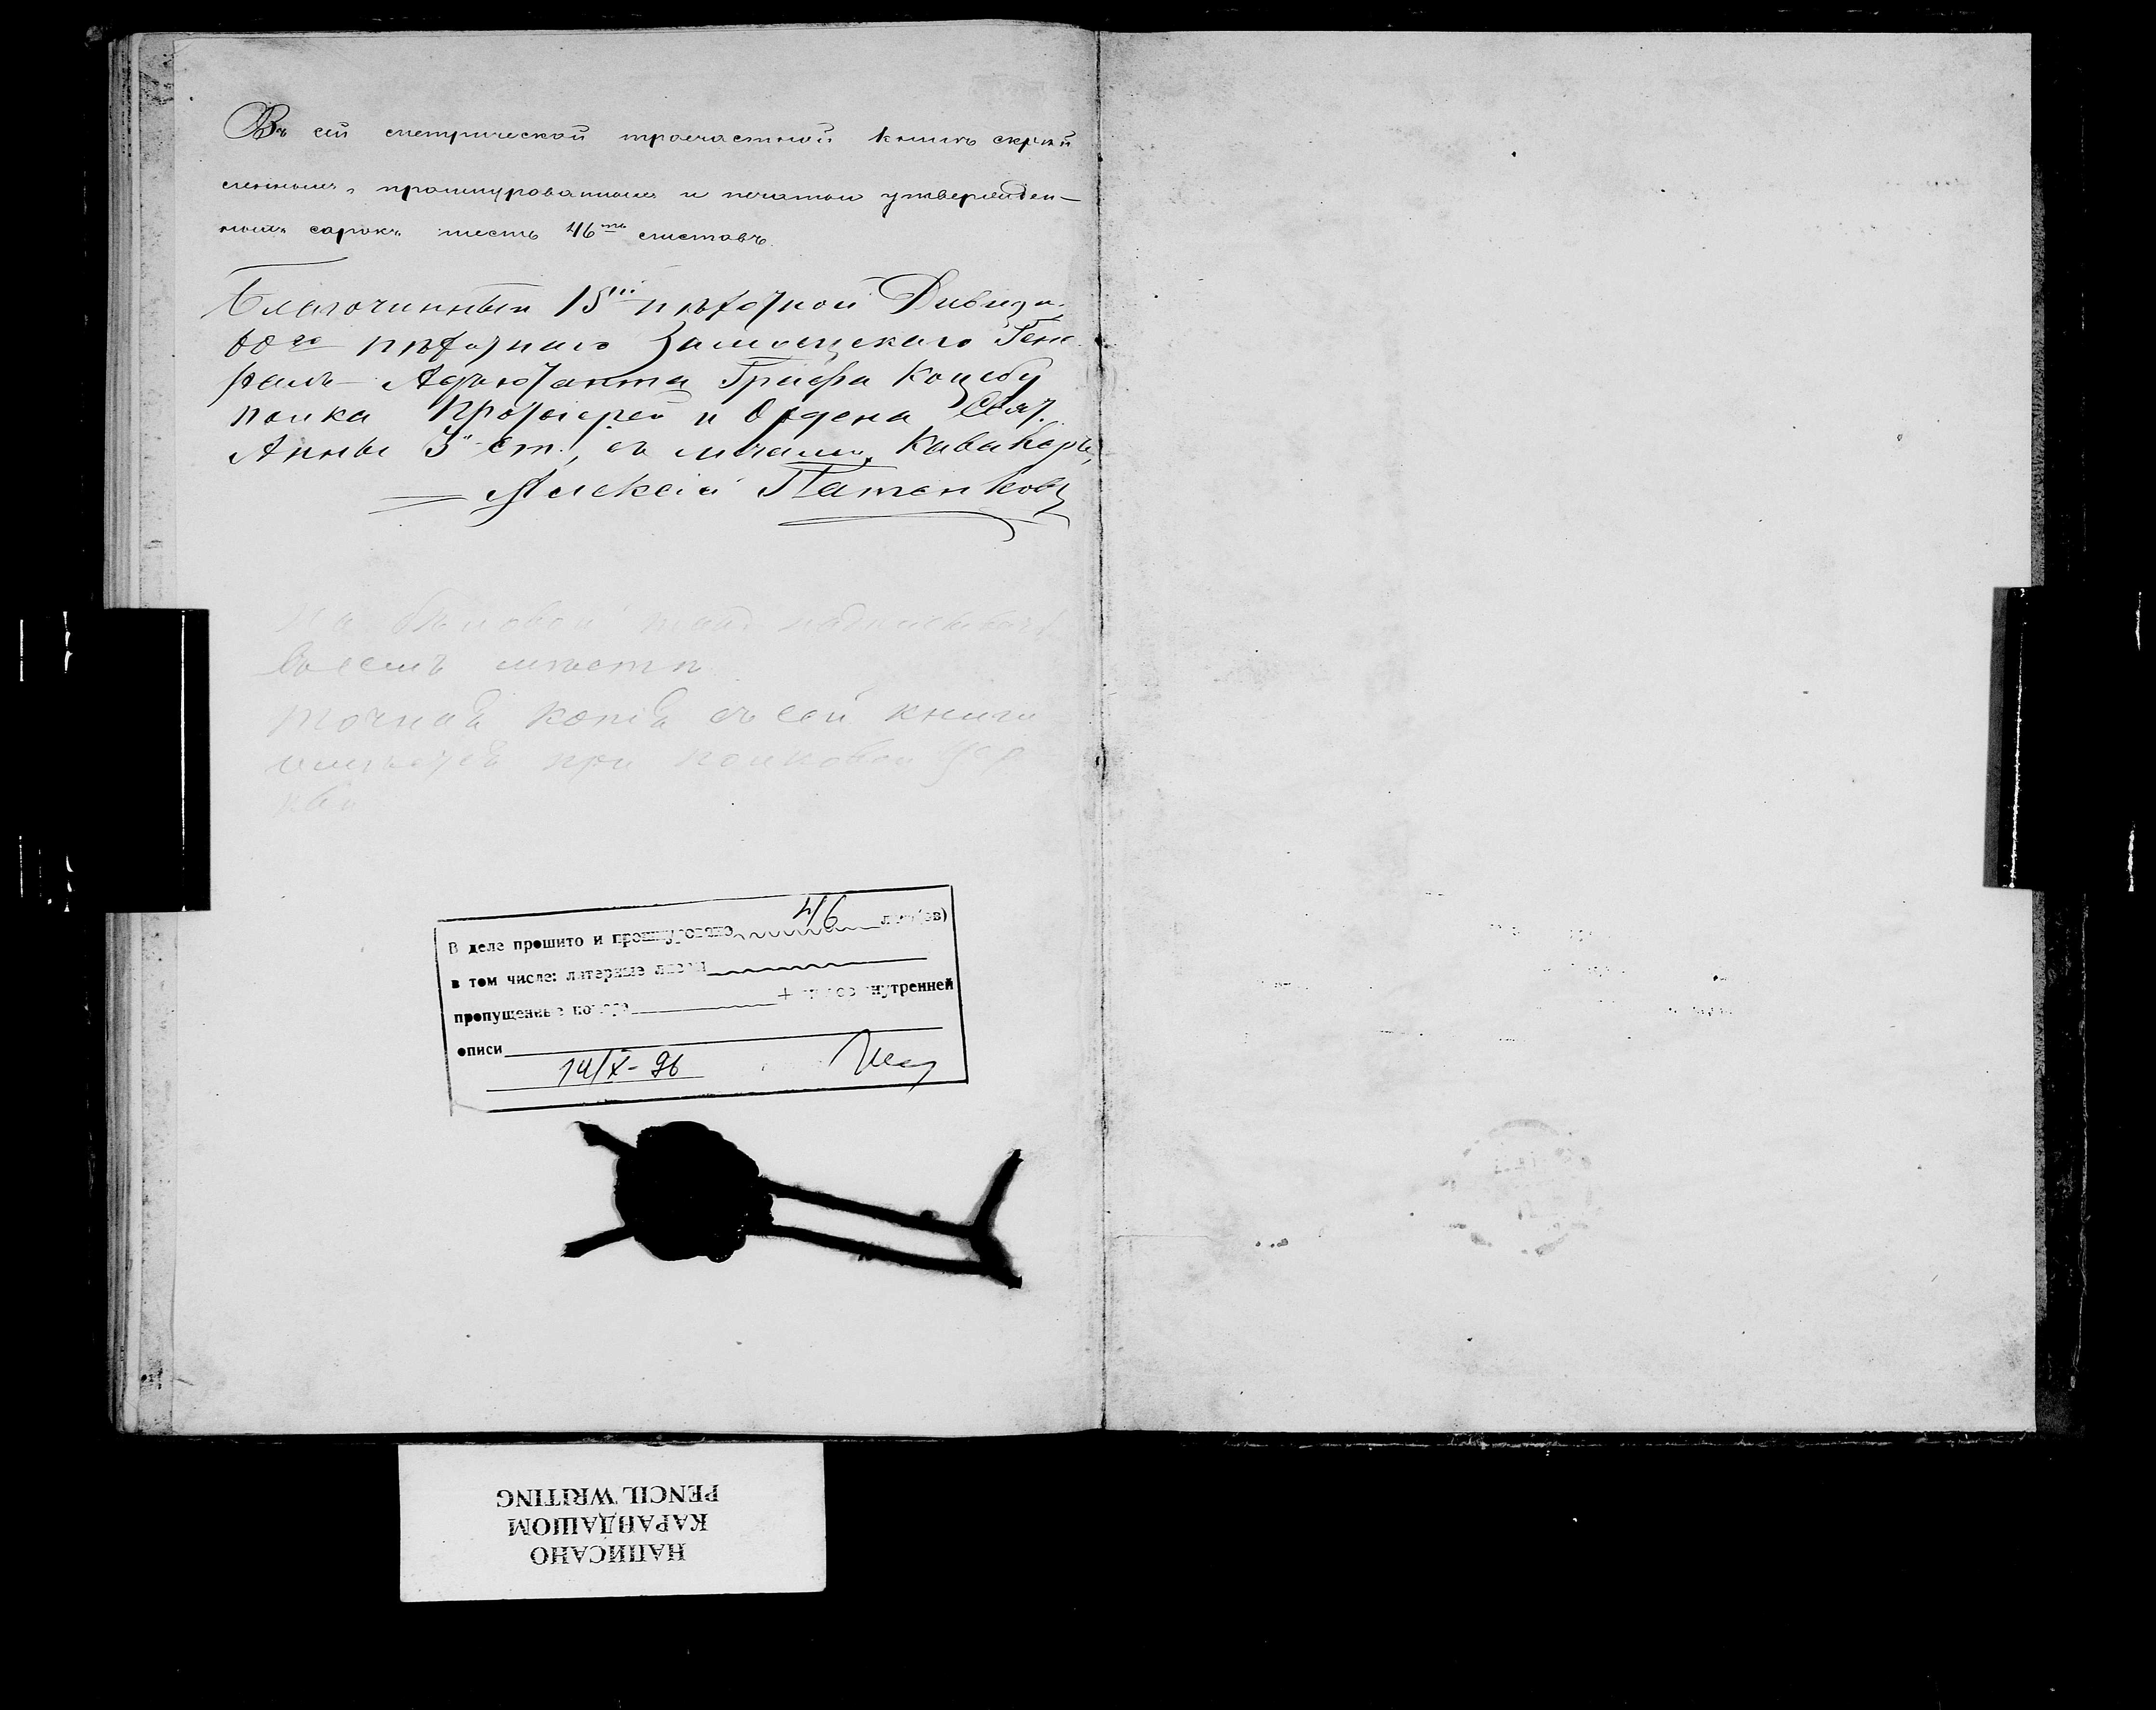 Въ сей метрической троечастной книгѣ скрѣп
ленныхъ, прошнурованныхъ и печатью утвержден-
ныхъ сорокъ шесть 46ть листовъ.
Благочинный 15й пѣхотной Дивизіи,
60го пѣхотнаго Замосцскаго Гене-
ралъ-Адъютанта Графа Коцебу
полка Протоіерей и Ордена Свят.
Анны 3й ст., съ мечами, Кавалеръ,
Алексій
на бѣловой подписывать
во семъ мѣстѣ
точная копія съ сей книги
имѣется при полковой цер
кви
В деле прошито и прошнуровано 46 лист(ов)
в том числе: литерные листы
пропущенные номера + листов внутренней
описи
14/X-96
НАПИСАНО
КАРАНДАШОМ
PENCIL WRITING